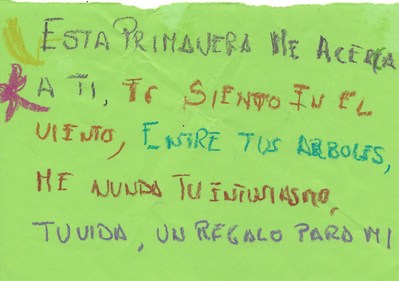 ESTA PRIMAVERA ME ACERCA
A TI, TE SIENTO EN EL
VIENTO, ENTRE TUS ARBOLES,
ME INUNDA TU ENTUSIASMO,
TU VIDA, UN REGALO PARA MI